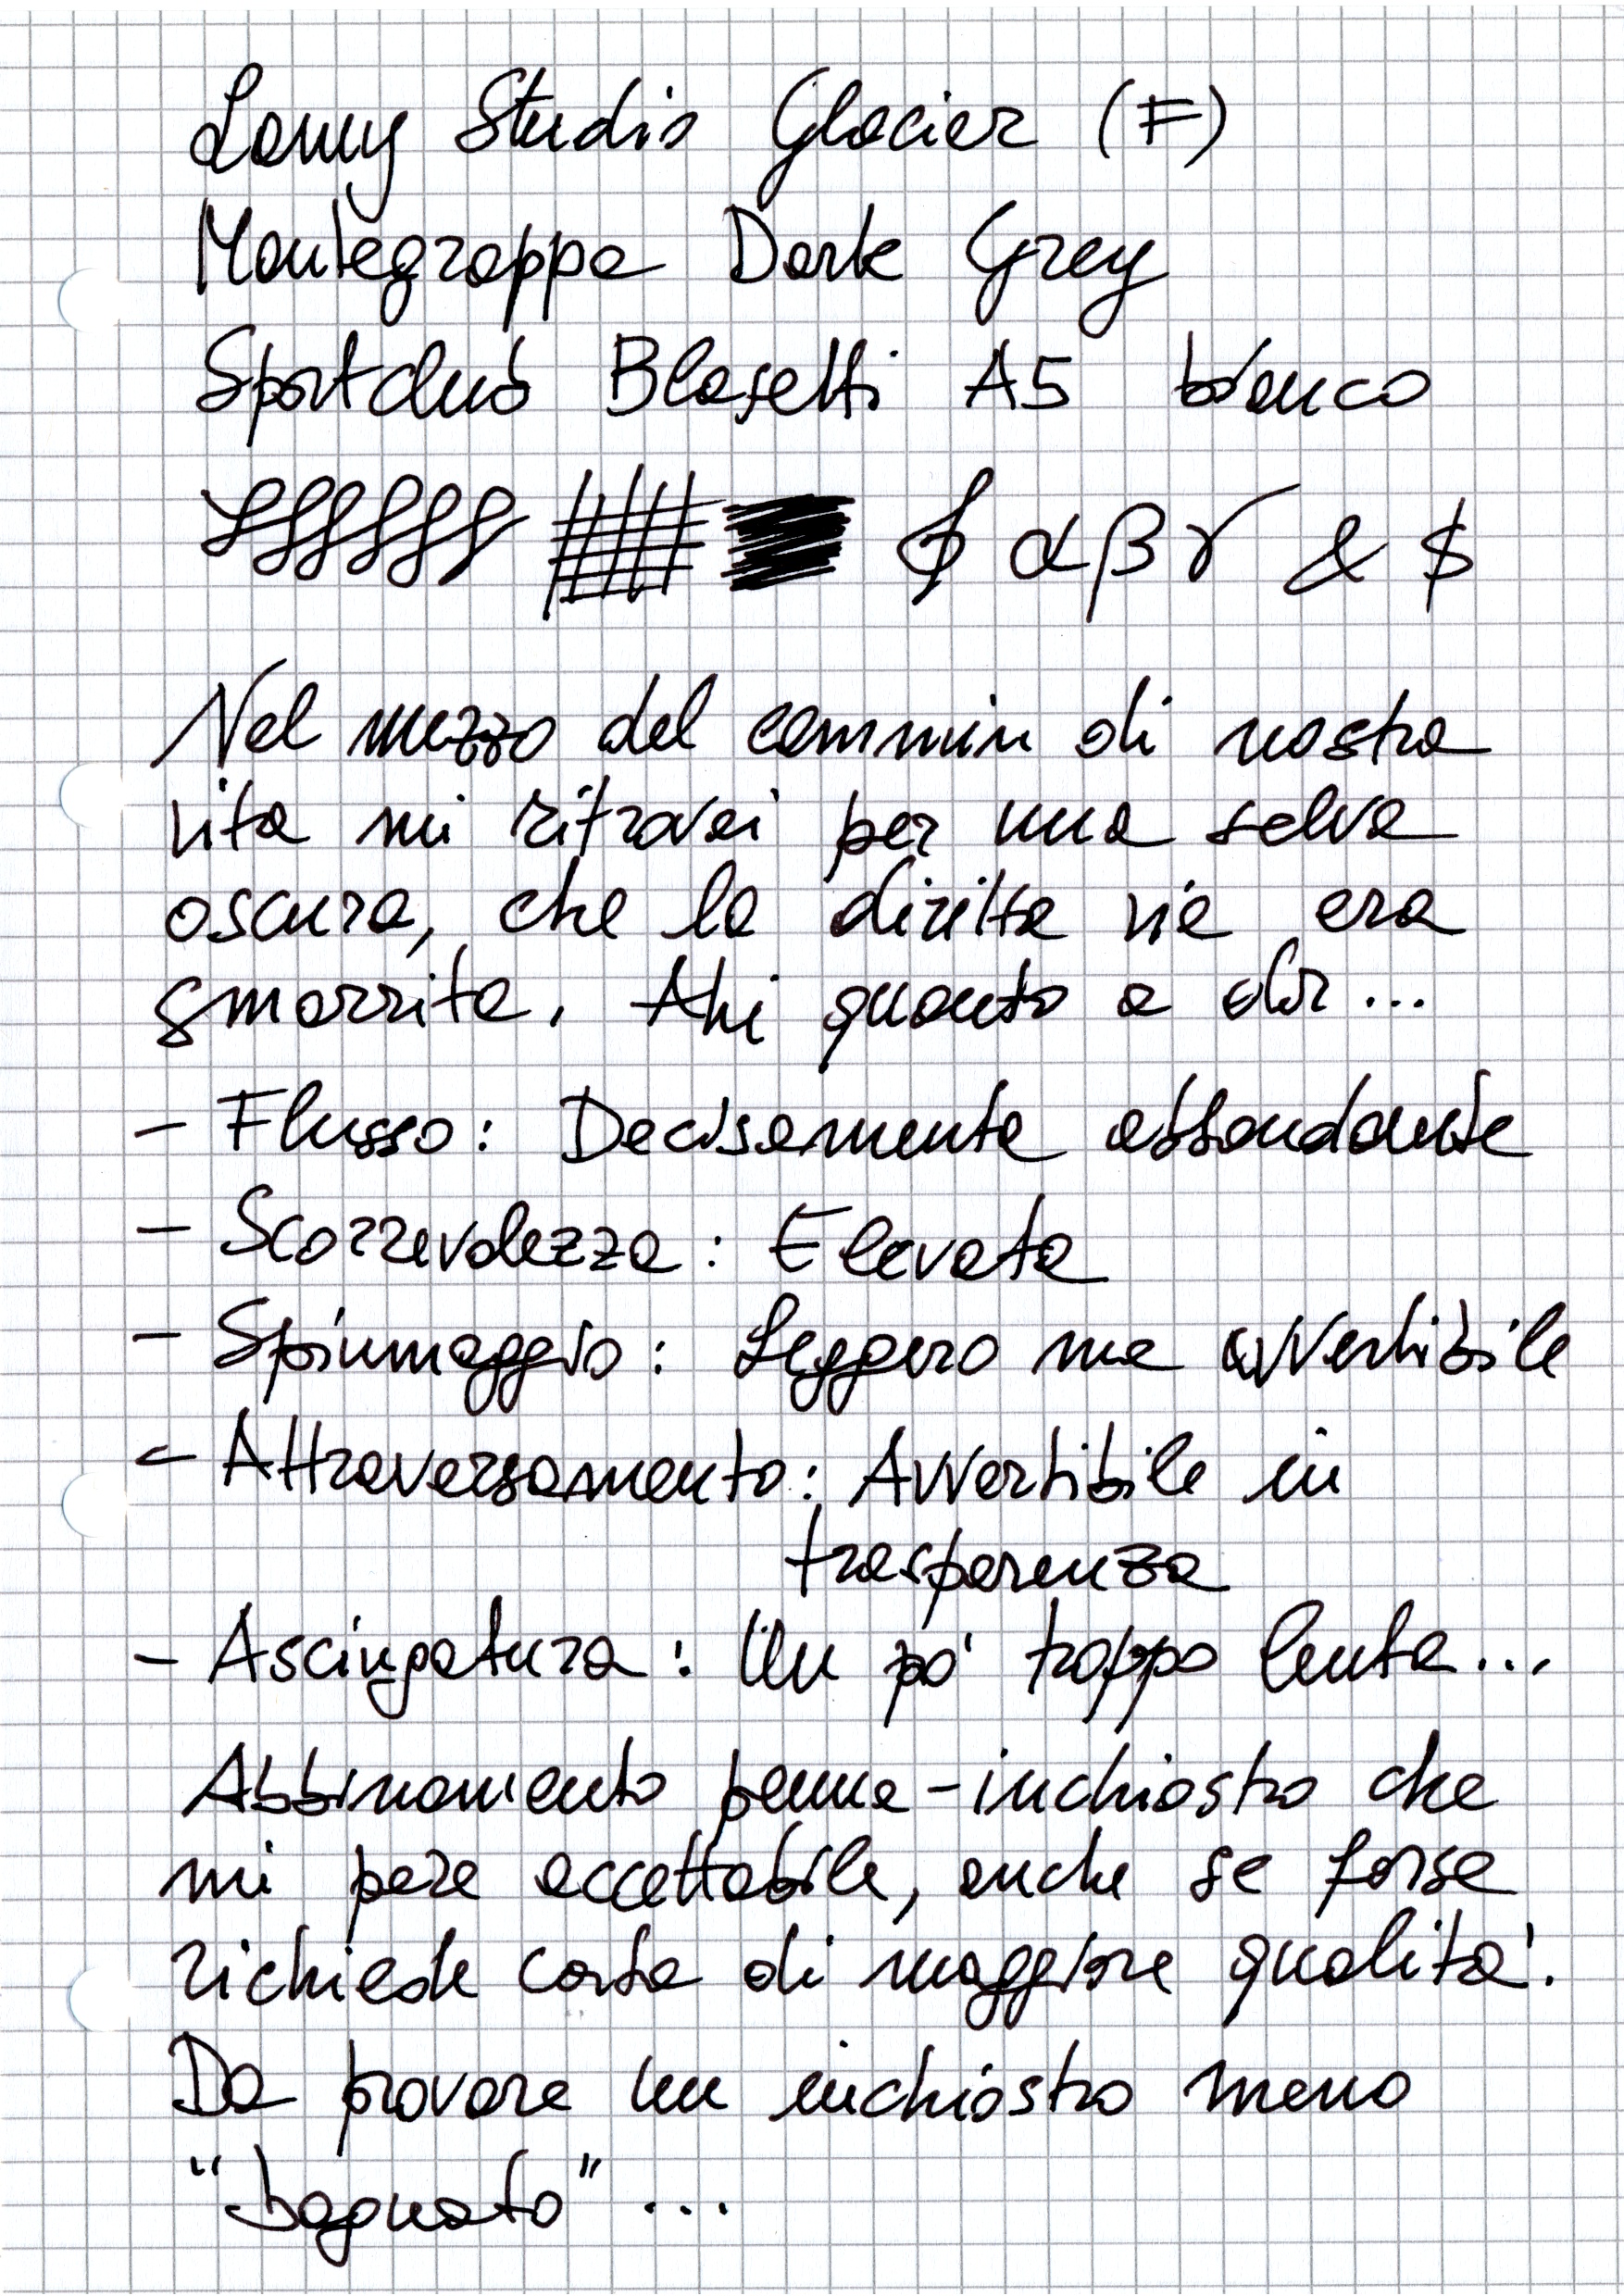 Lamy Studio Glacier (F)
Montegrappa Dark Grey
Sportclub Blasetti A5 bianco
α β γ & $
Nel mezzo del cammin di nostra
vita mi ritrovai per una selva
oscura, che la diritta via era
smarrita. Ahi quanto a dir...
- Flusso: Decisamente abbondante
- Scorrevolezza: Elevata
- Spiumaggio: Leggero ma avvertibile
- Attraversamento: Avvertibile in
trasparenza
- Asciugatura: Un po' troppo lenta...
Abbinamento penna-inchiostro che
mi pare accettabile, anche se forse
richiede carta di maggiore qualita'.
Da provare un inchiostro meno
"bagnato" ...